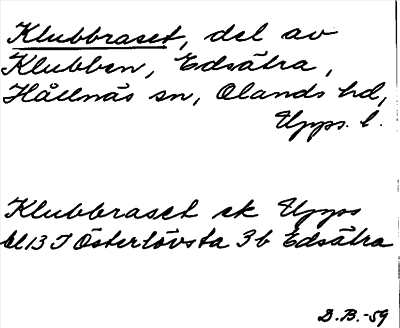 Klubbraset, del av
Klubben, Edsätra,
Hållnäs sn, Olands hd,
Upps. l.
Klubbraset ek Upps
bl 13 I Österlövsta 3b Edsätra
B.B.-59